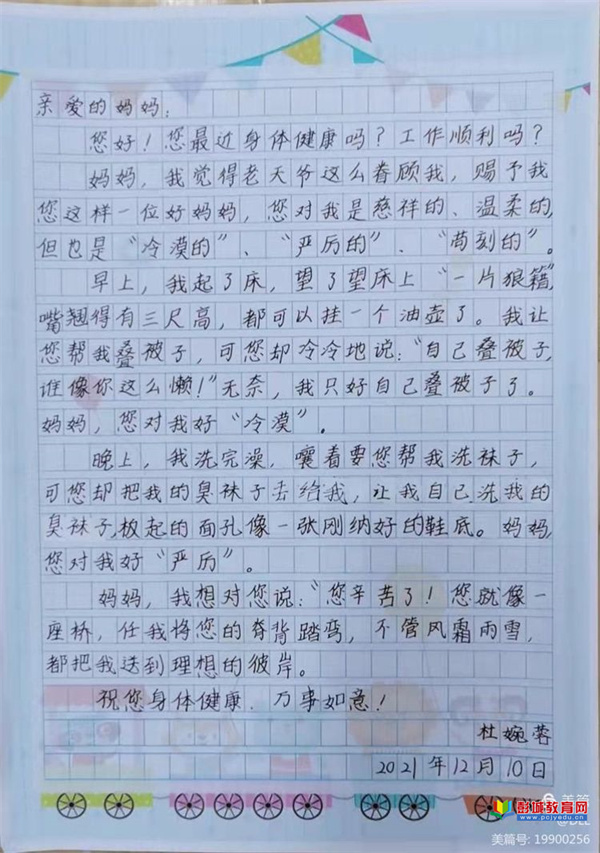 亲爱的妈妈：
您好！您最近身体健康吗？工作顺利吗？
妈妈，我觉得老天爷这么眷顾我，赐予我
您这样一位好妈妈，您对我是慈祥的、温柔的，
但也是“冷漠的”、“严厉的”、“苛刻的”。
早上，我起了床，望了望床上“一片狼籍”，
嘴翘得有三尺高，都可以挂一个油壶了。我让
您帮我叠被子，可您却冷冷地说：“自己叠被子，
谁像你这么懒！”无奈，我只好自己叠被子了。
妈妈，您对我好“冷漠”。
晚上，我洗完澡，嚷着要您帮我洗袜子，
可您却把我的臭袜子丢给我，让我自己洗我的
臭袜子，板起的面孔像一张刚纳好的鞋底。妈妈，
您对我好“严厉”。
妈妈，我想对您说：“您辛苦了！您就像一
座桥，任我将您的脊背踏弯，不管风霜雨雪，
都把我送到理想的彼岸。
祝您身体健康，万事如意！
杜婉蓉
2021年12月10日
彭城教育网
www.pcjyedu.cn
美篇号：19900256